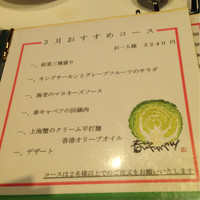 3月おすすめコース
お一人様 3240円
一、前菜三種盛り
一、キングサーモンとグレープフルーツのサラダ
一、海老のマヨネーズソース
一、春キャベツの回鍋肉
一、上海蟹のクリーム平打麺
香港オリーブオイル
一、デザート
春キャベツ
コースは2名様以上でのご注文をお願いいたします